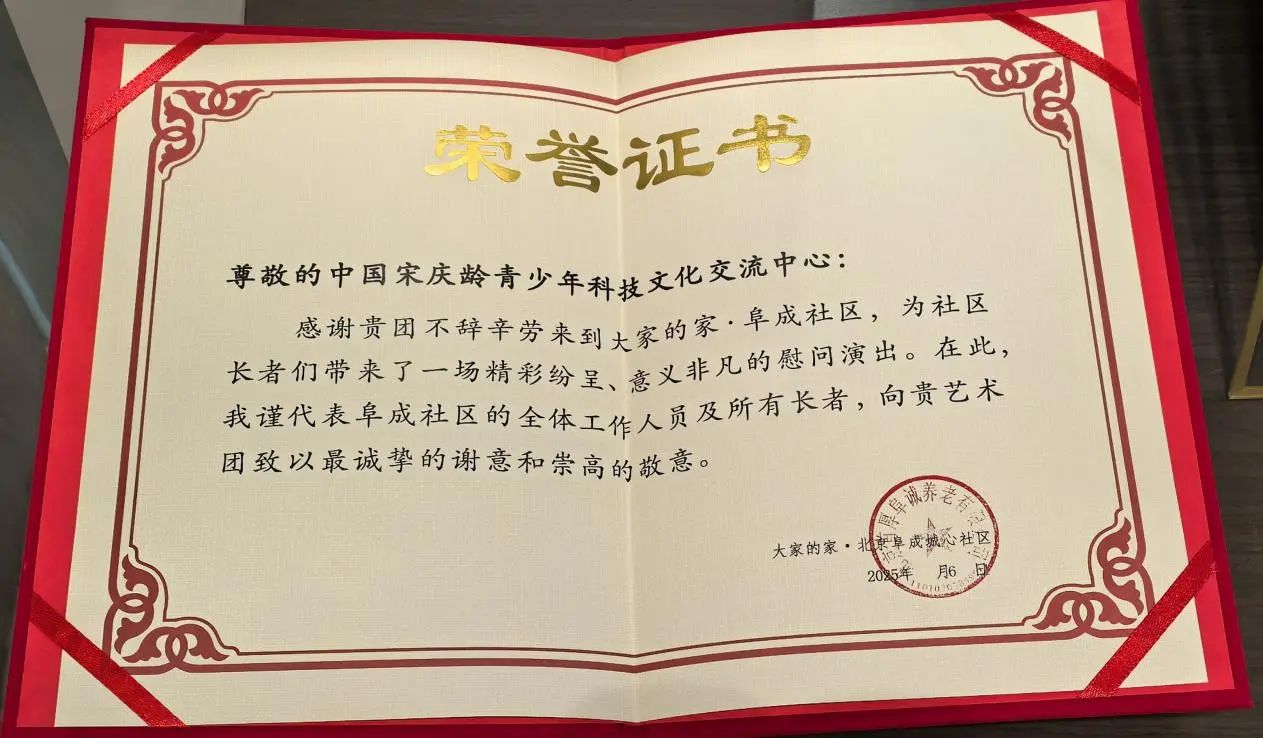 荣誉证书
尊敬的中国宋庆龄青少年科技文化交流中心：
感谢贵团不辞辛劳来到大家的家·阜成社区，为社区
长者们带来了一场精彩纷呈、意义非凡的慰问演出。在此，
我谨代表阜成社区的全体工作人员及所有长者，向贵艺术
团致以最诚挚的谢意和崇高的敬意。
厚阜诚养老有
大家的家·北京阜成城心社区
2025年 月6 日